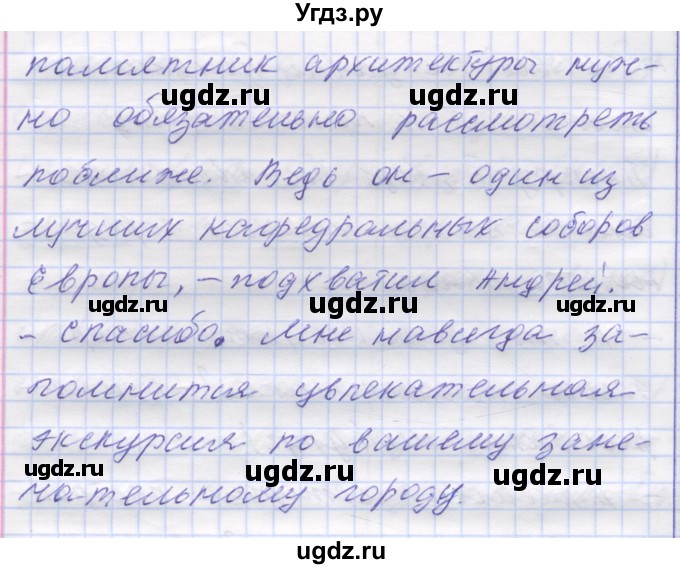 Угдз.ру
памятник архитектуры нуж-
но обязательно рассмотреть
поближе. Ведь он – один из
лучших кафедральных соборов
Европы, – подхватил Андрей.
– Спасибо. Мне навсегда за-
помнится увлекательная
экскурсия по вашему заме-
чательному городу.
ugdz.ru
ugdz.ru
ugdz.ru
ugdz.ru
ugdz.ru
ugdz.ru
ugdz.ru
ugdz.ru
ugdz.ru
ugdz.ru
ugdz.ru